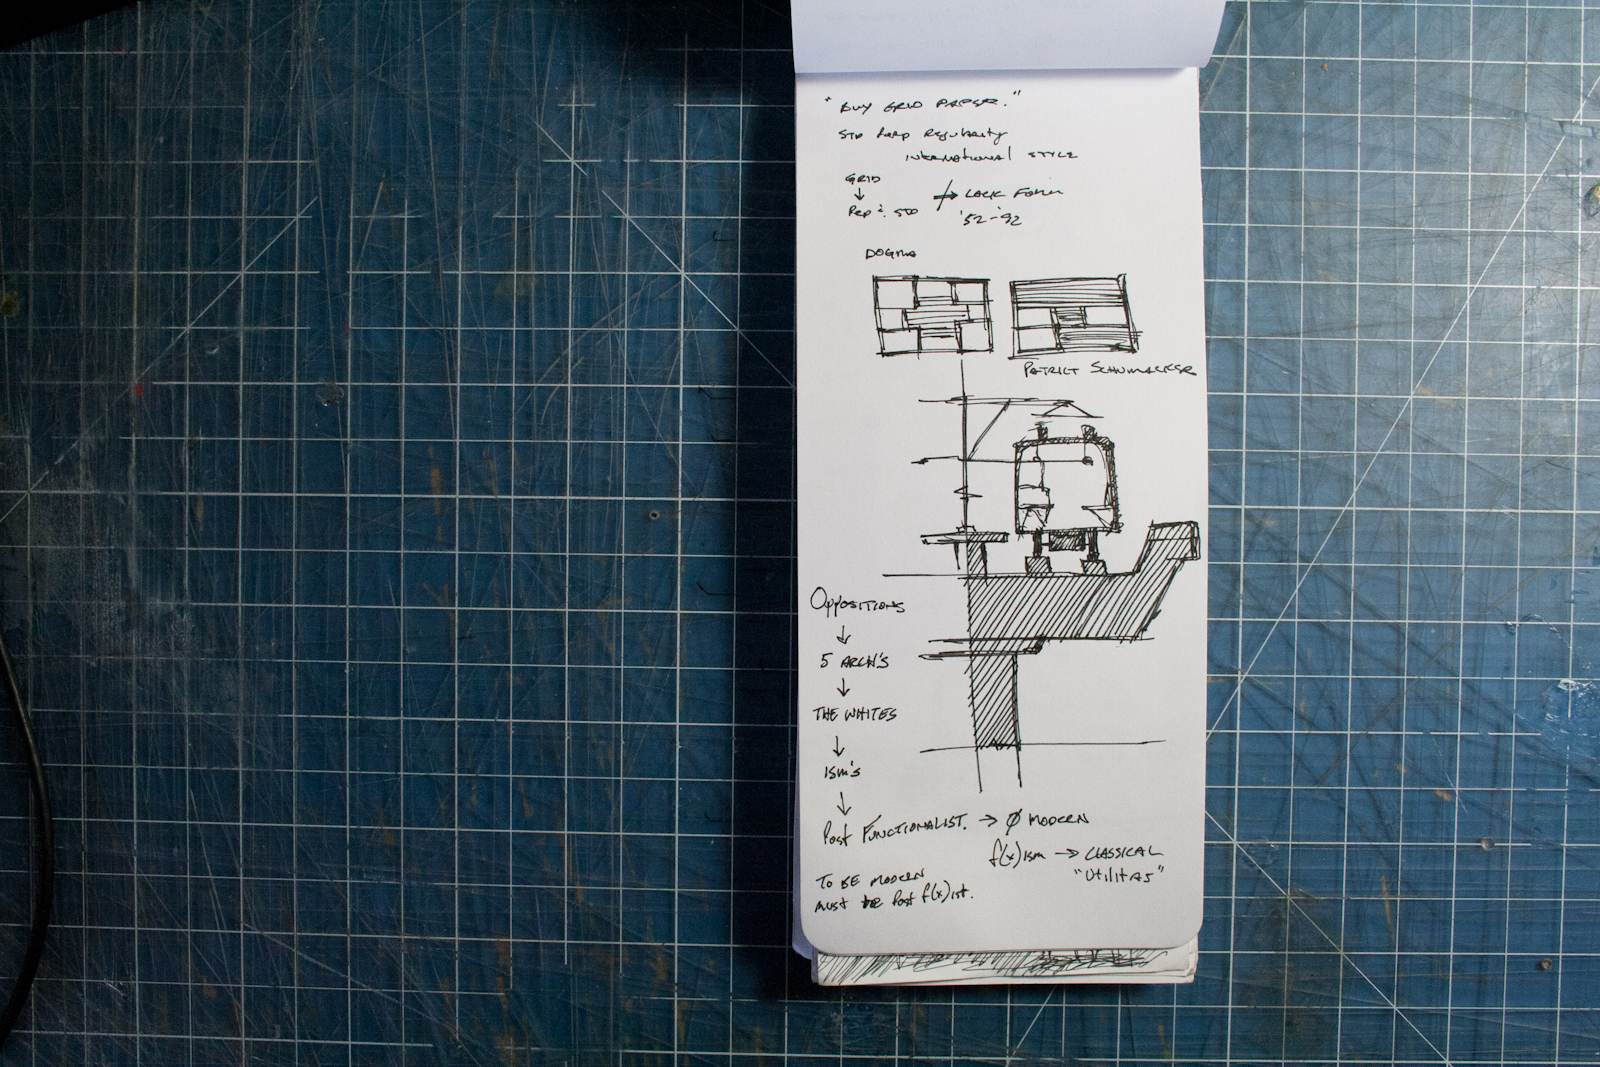 "BUY GRID PAPER."
STD REPP Regularity
INTERNATIONAL STYLE
GRID
↓
Rep & STD → LACK FORM
'52-'92
DOGMA
PATRICT SCHUMACKER
OPPOSITIONS
↓
5 ARCH'S
↓
THE WHITES
↓
ISM'S
↓
Post FUNCTIONALIST. → Ø MODERN
f(x)ism → CLASSICAL
"UTILITAS"
TO BE MODERN
must be Post f(x)ist.